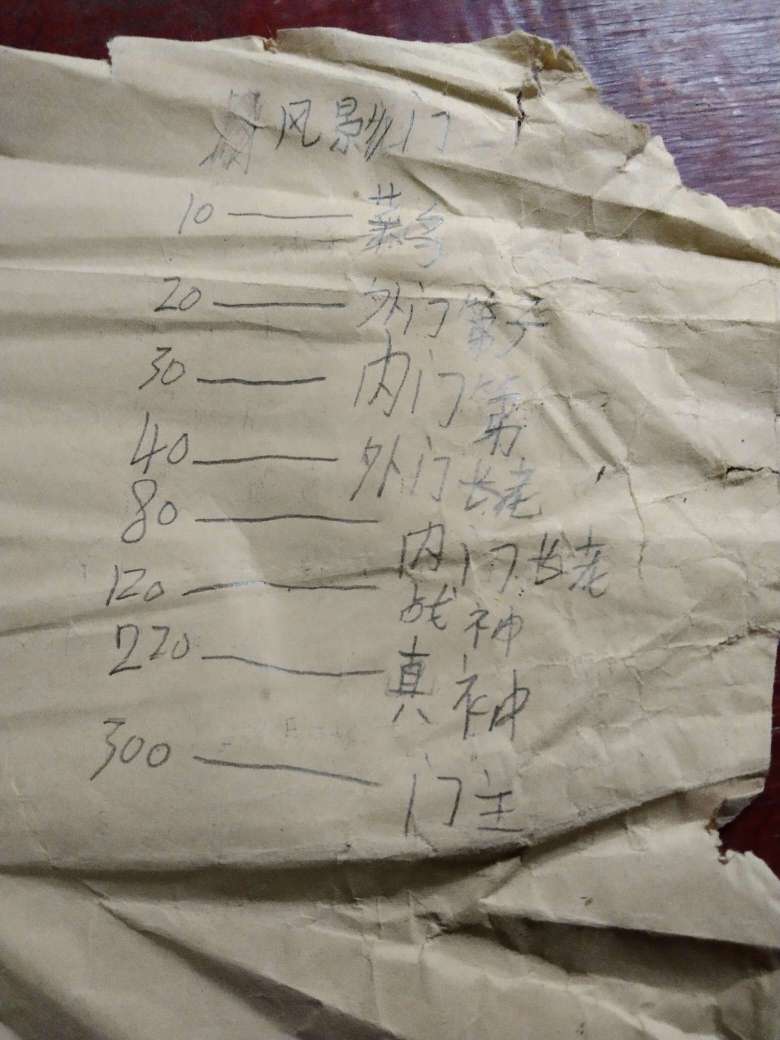 风影门
10 —— 菜鸟
20 —— 外门弟子
30 —— 内门弟
40 —— 外门长老
80 —— 内门长老
120 —— 战神
220 —— 真神
300 —— 门主